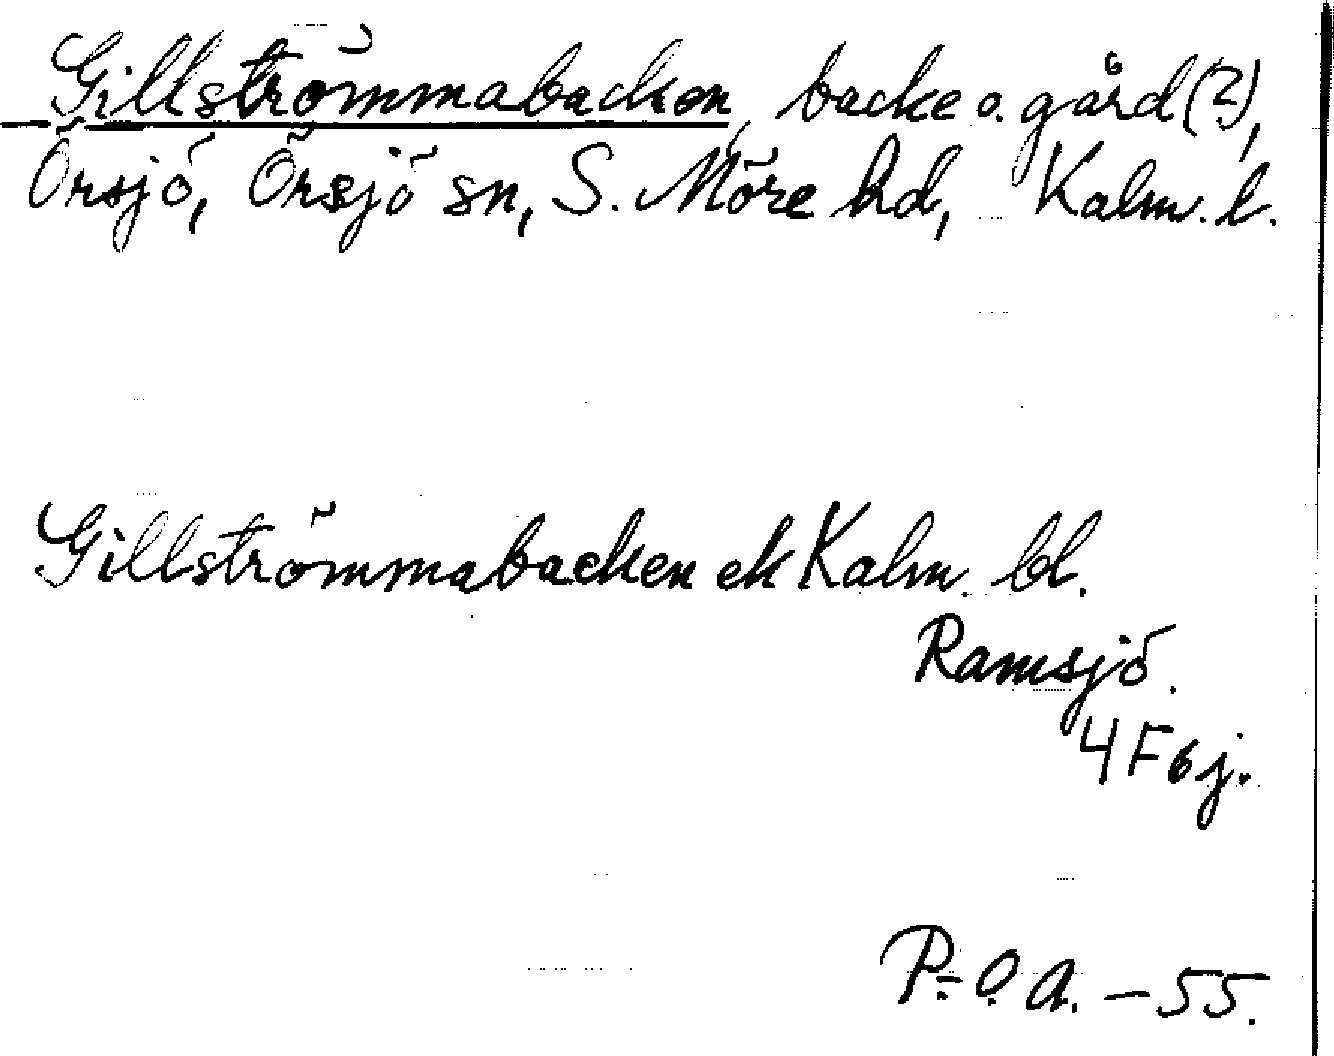 Gillströmmabacken, backe o. gård (?),
Örsjö, Örsjö sn, S. Möre hd, Kalm. l.
Gillströmmabacken ek Kalm. bl.
Ramsjö.
4F6j.
P.-O. A. - 55.